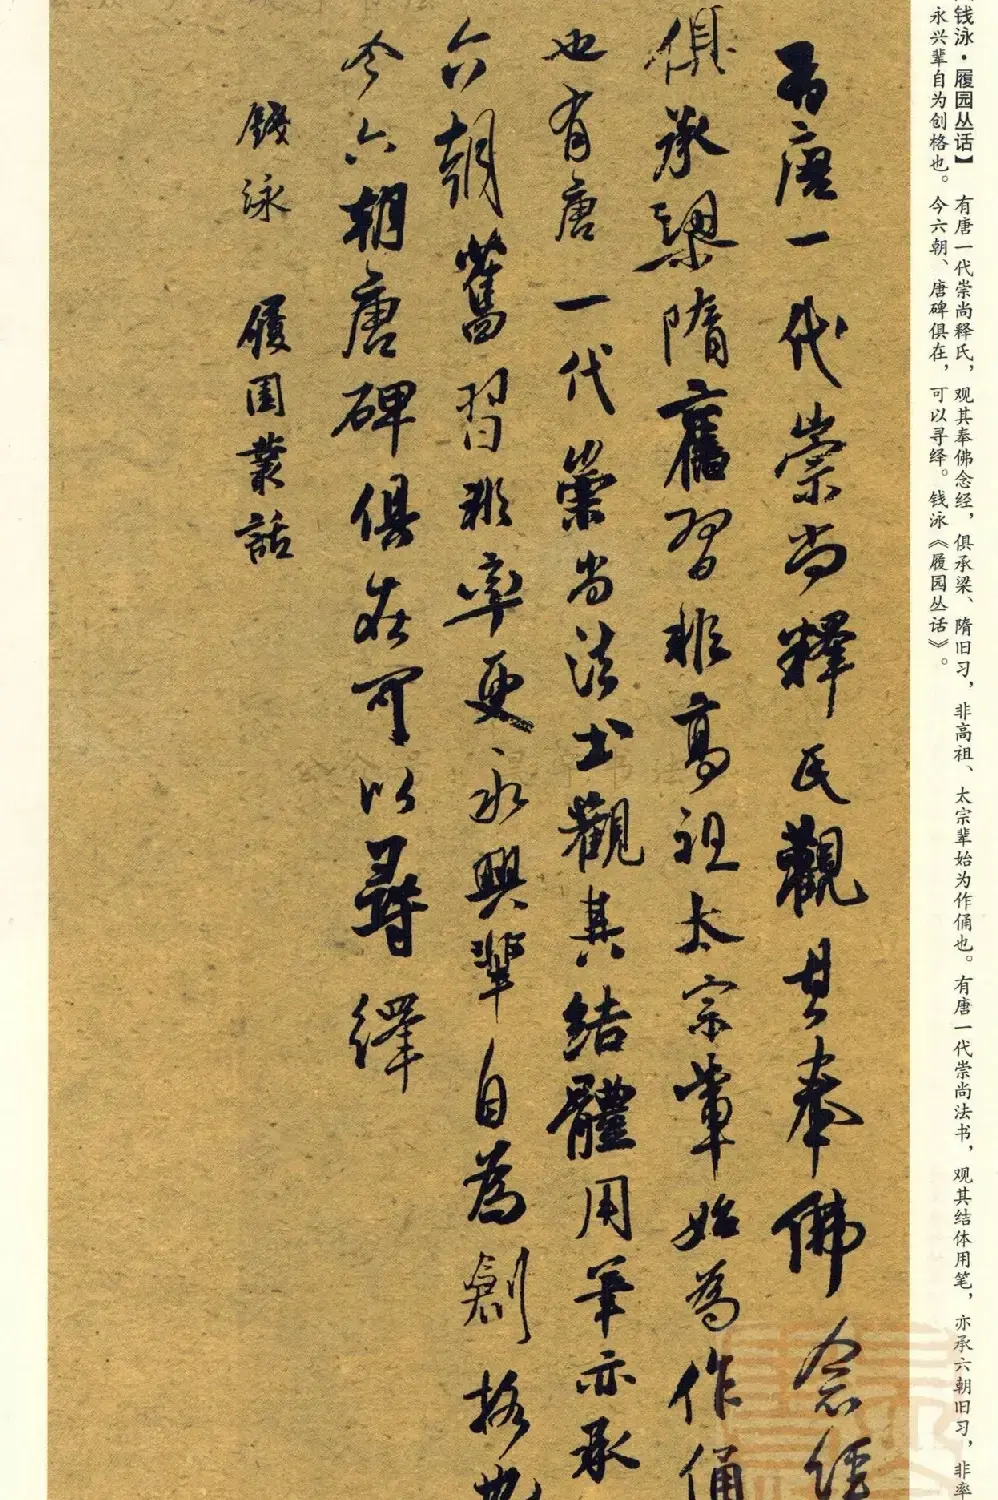 钱泳·履园丛话】 有唐一代崇尚释氏，观其奉佛念经，俱承梁、隋旧习，非高祖、太宗辈始为作俑也。有唐一代崇尚法书，观其结体用笔，亦承六朝旧习，非率
永兴辈自为创格也。今六朝、唐碑俱在，可以寻绎。钱泳《履园丛话》。
有唐一代崇尚釋氏觀其奉佛念經
俱承梁隋舊習非高祖太宗輩始為作俑
也有唐一代崇尚法書觀其結體用筆亦承
六朝舊習非率更永興輩自為創格也
今六朝唐碑俱在可以尋繹
錢泳 履園叢話